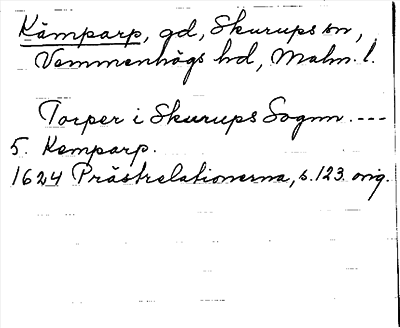 Kämparp, gd, Skurups sn,
Vemmenhögs hd, Malm. l.
Torper i Skurups Sognn. ---
5. Kemparp.
1624 Prästrelationerna, s. 123 orig.